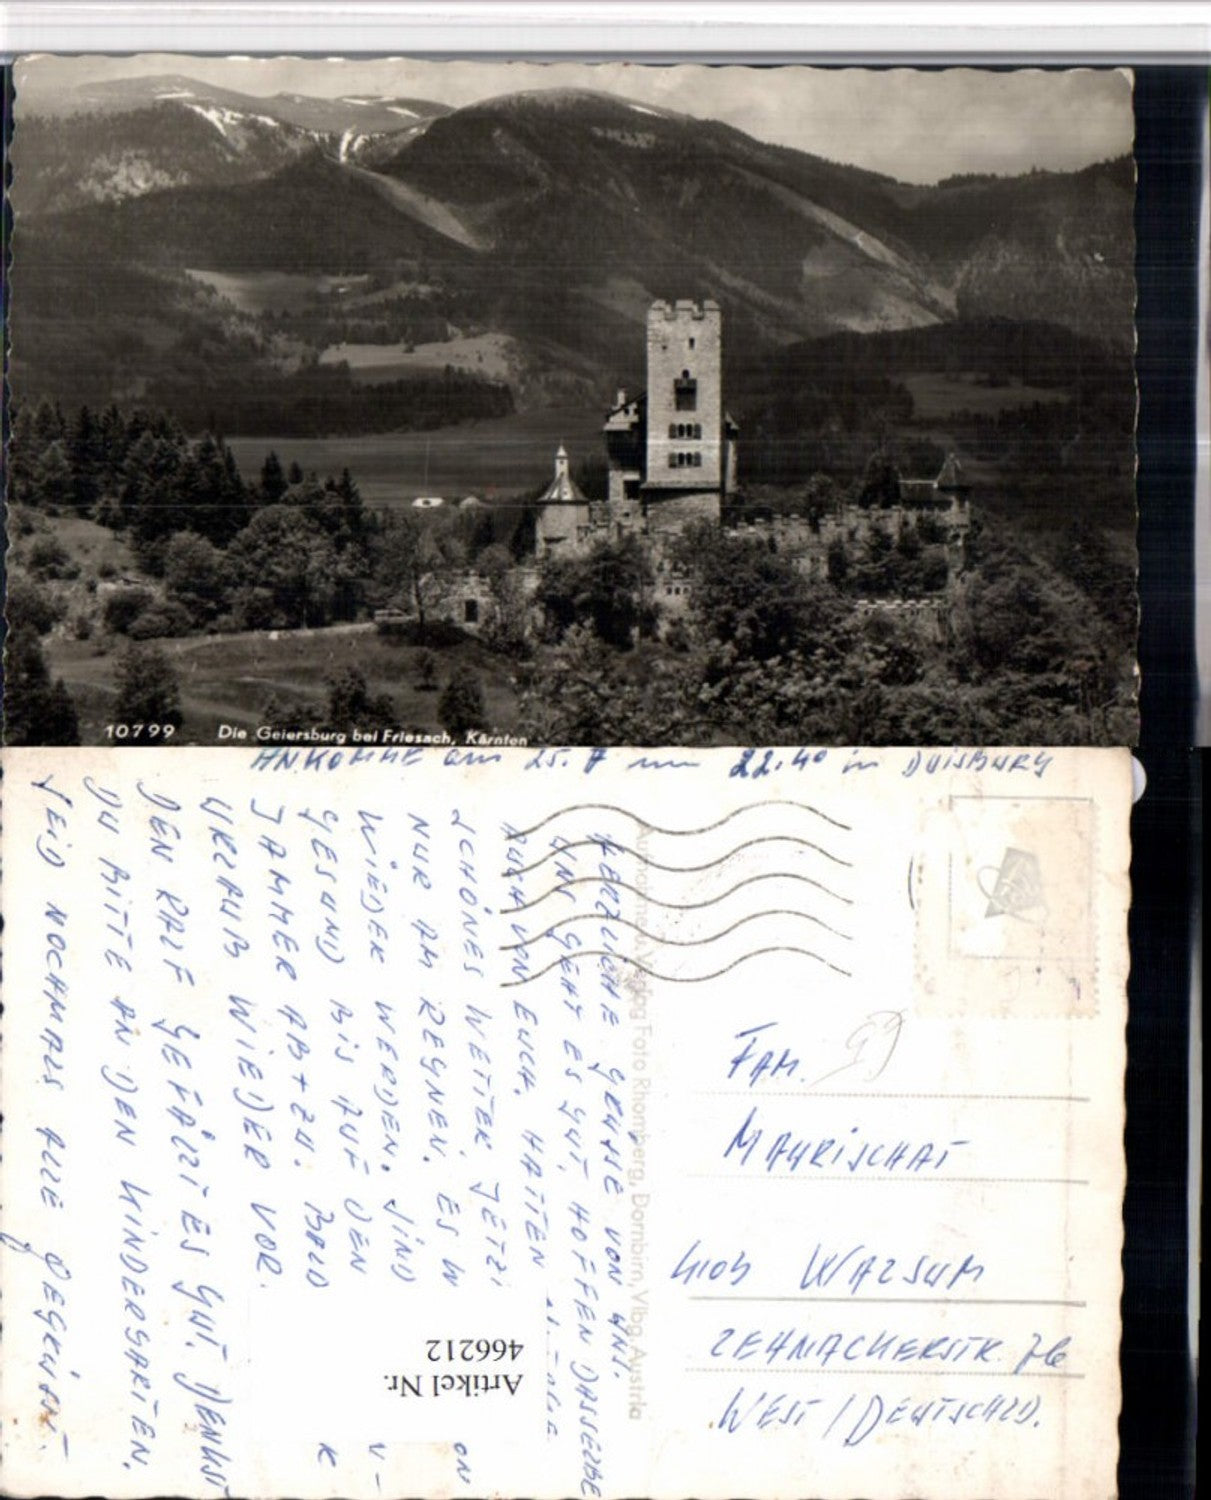 10799 Die Geiersburg bei Friesach, Kärnten
ANKOMME am 25.7 um 22.40 in DUISBURG
HERZLICHE GRÜSSE VON UNS.
UNS GEHT ES GUT, HOFFEN DASSELBE
AUCH VON EUCH. HATTEN
SCHÖNES WETTER, JETZT
NUR AM REGNEN. ES
WIEDER WERDEN. SIND
GESUND BIS AUF DEN
JAMMER AB + ZU. BALD
URLAUB WIEDER VOR.
DEN RALF GEFÄLLT ES GUT. DENKST
DU BITTE AN DEN KINDERGARTEN.
SEID NOCHMALS ALLE GEGRÜSST.
Foto Rhomberg, Dornbirn, Vlbg. Austria
Artikel Nr.
466212
FAM.
MAURISCHAT
4103 WALSUM
ZEHNACKERSTR. 76
WEST / DEUTSCHLD.